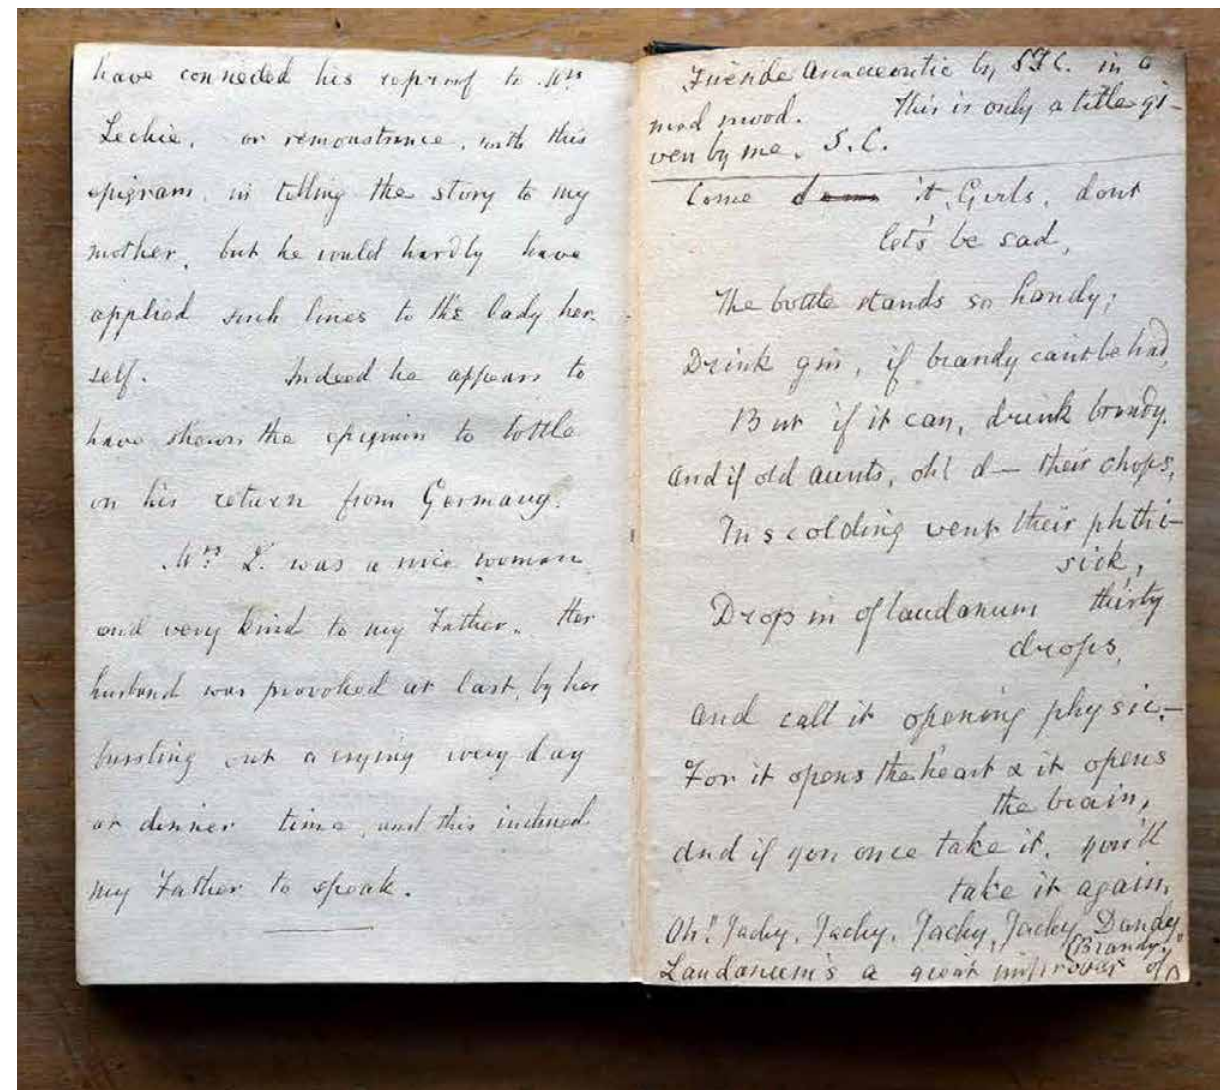 have connected his reproof to Mrs
Leckie, or remonstrance, with this
epigram, in telling the story to my
mother, but he would hardly have
applied such lines to the lady her-
self. Indeed he appears to
have shown the epigram to Tottle
on his return from Germany.
Mrs L. was a nice woman
and very kind to my Father. Her
husband was provoked at last, by her
bursting out a crying every day
at dinner time, and this induced
my Father to speak.
Anacreontic by STC. in a
mad mood. This is only a title gi-
ven by me. S.C.
Come it, Girls, dont
let's be sad,
The bottle stands so handy;
Drink gin, if brandy cant be had,
But if it can, drink brandy.
And if old aunts, oh! d— their chops,
In scolding vent their phthi-
sick,
Drop in of laudanum thirty
drops,
And call it opening physic.—
For it opens the heart & it opens
the brain,
And if you once take it, you'll
take it again.
Oh! Jacky, Jacky, Jacky, Jacky Dandy,
(Brandy.
Laudanum's a great improver of